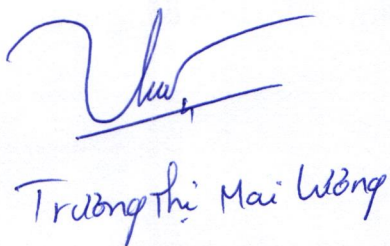 Trương Thị Mai Lương